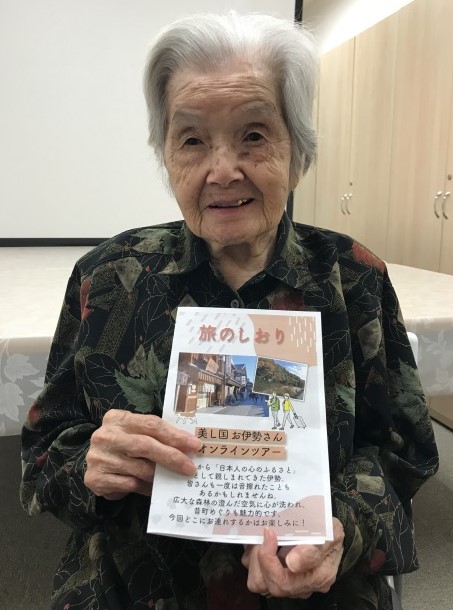 旅のしおり
美し国 お伊勢さん
オンラインツアー
から「日本人の心のふるさと」
として親しまれてきた伊勢。
皆さんも一度は音擦れたことも
あるかもしれませんね。
広大な森林の澄んだ空気に心が洗われ、
昔町めぐりも魅力的です。
今回どこにお連れするかはお楽しみに！